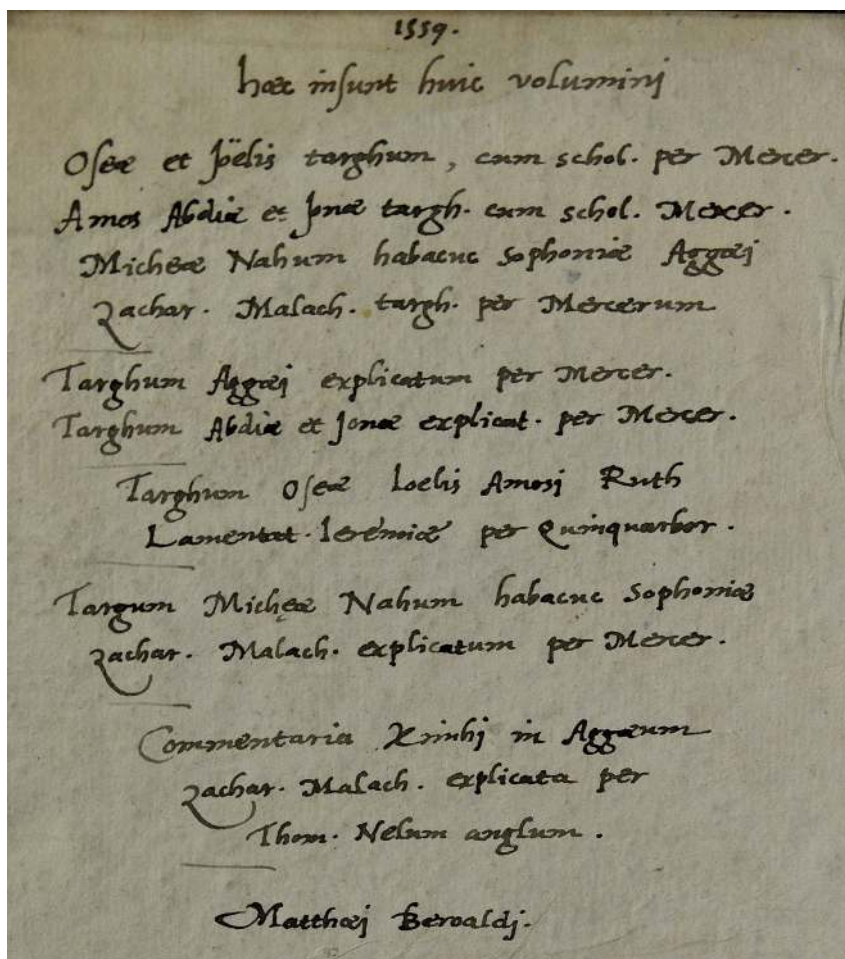 1559.
hæc insunt huic voluminj
Oseæ et Joëlis targhum, cum schol. per Mercer.
Amos Abdiæ et Jonæ targh. cum schol. Mercer.
Micheæ Nahum habacuc Sophoniæ Aggæj
Zachar. Malach. targh. per Mercerum
Targhum Aggæj explicatum per Mercer.
Targhum Abdiæ et Jonæ explicat. per Mercer.
Targhum Oseæ Ioelis Amosj Ruth
Lamentat. Ieremiæ per Quinquarbor.
Targum Micheæ Nahum habacuc Sophoniæ
Zachar. Malach. explicatum per Mercer.
Commentaria Kimhj in Aggæum
Zachar. Malach. explicata per
Thom. Nelum anglum.
Matthæj Beroaldj.